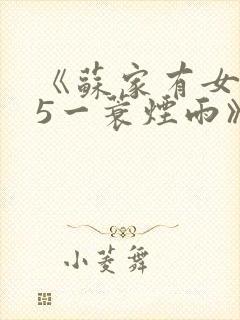 《蘇家有女
5一蓑煙雨》
小菱舞